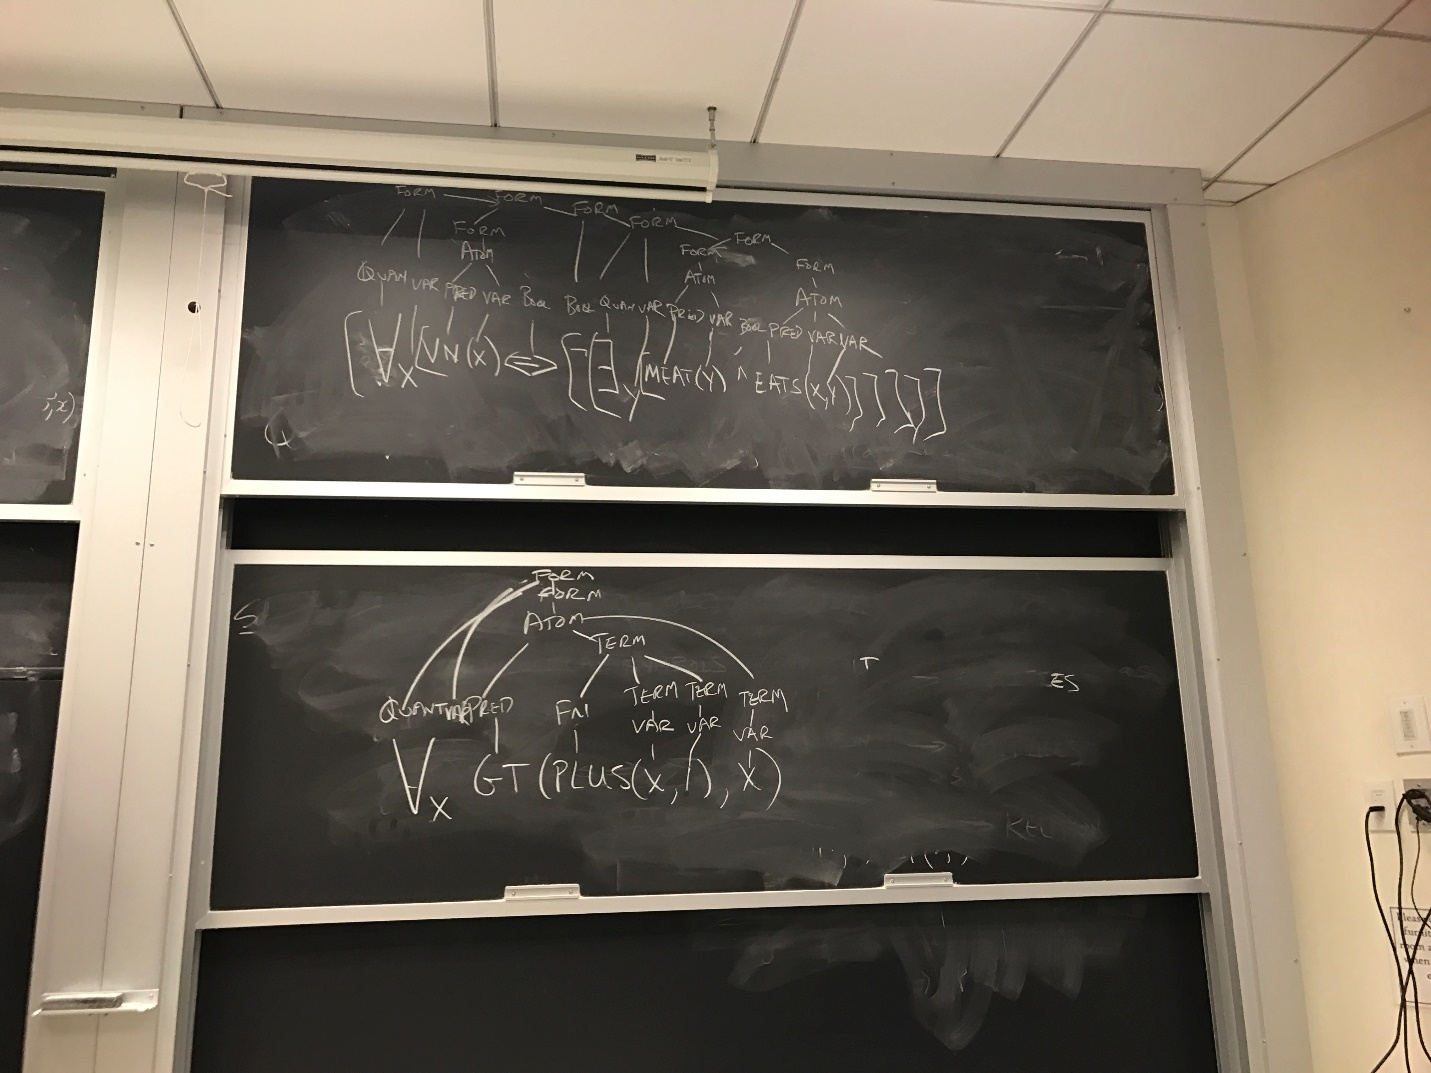 FORM FORM FORM FORM
FORM FORM FORM
ATOM ATOM FORM
QUAN VAR PRED VAR BOOL BOOL QUAN VAR PRED VAR ATOM
BOOL PRED VAR VAR
[∀x[VN(X) ⇔ [¬[∃y[MEAT(Y) ∧ EATS(X,Y)]]]]]
FORM
FORM
ATOM
TERM
QUANT VAR PRED FN TERM TERM TERM
VAR VAR VAR
∀x GT(PLUS(X,1),X)
T
ES